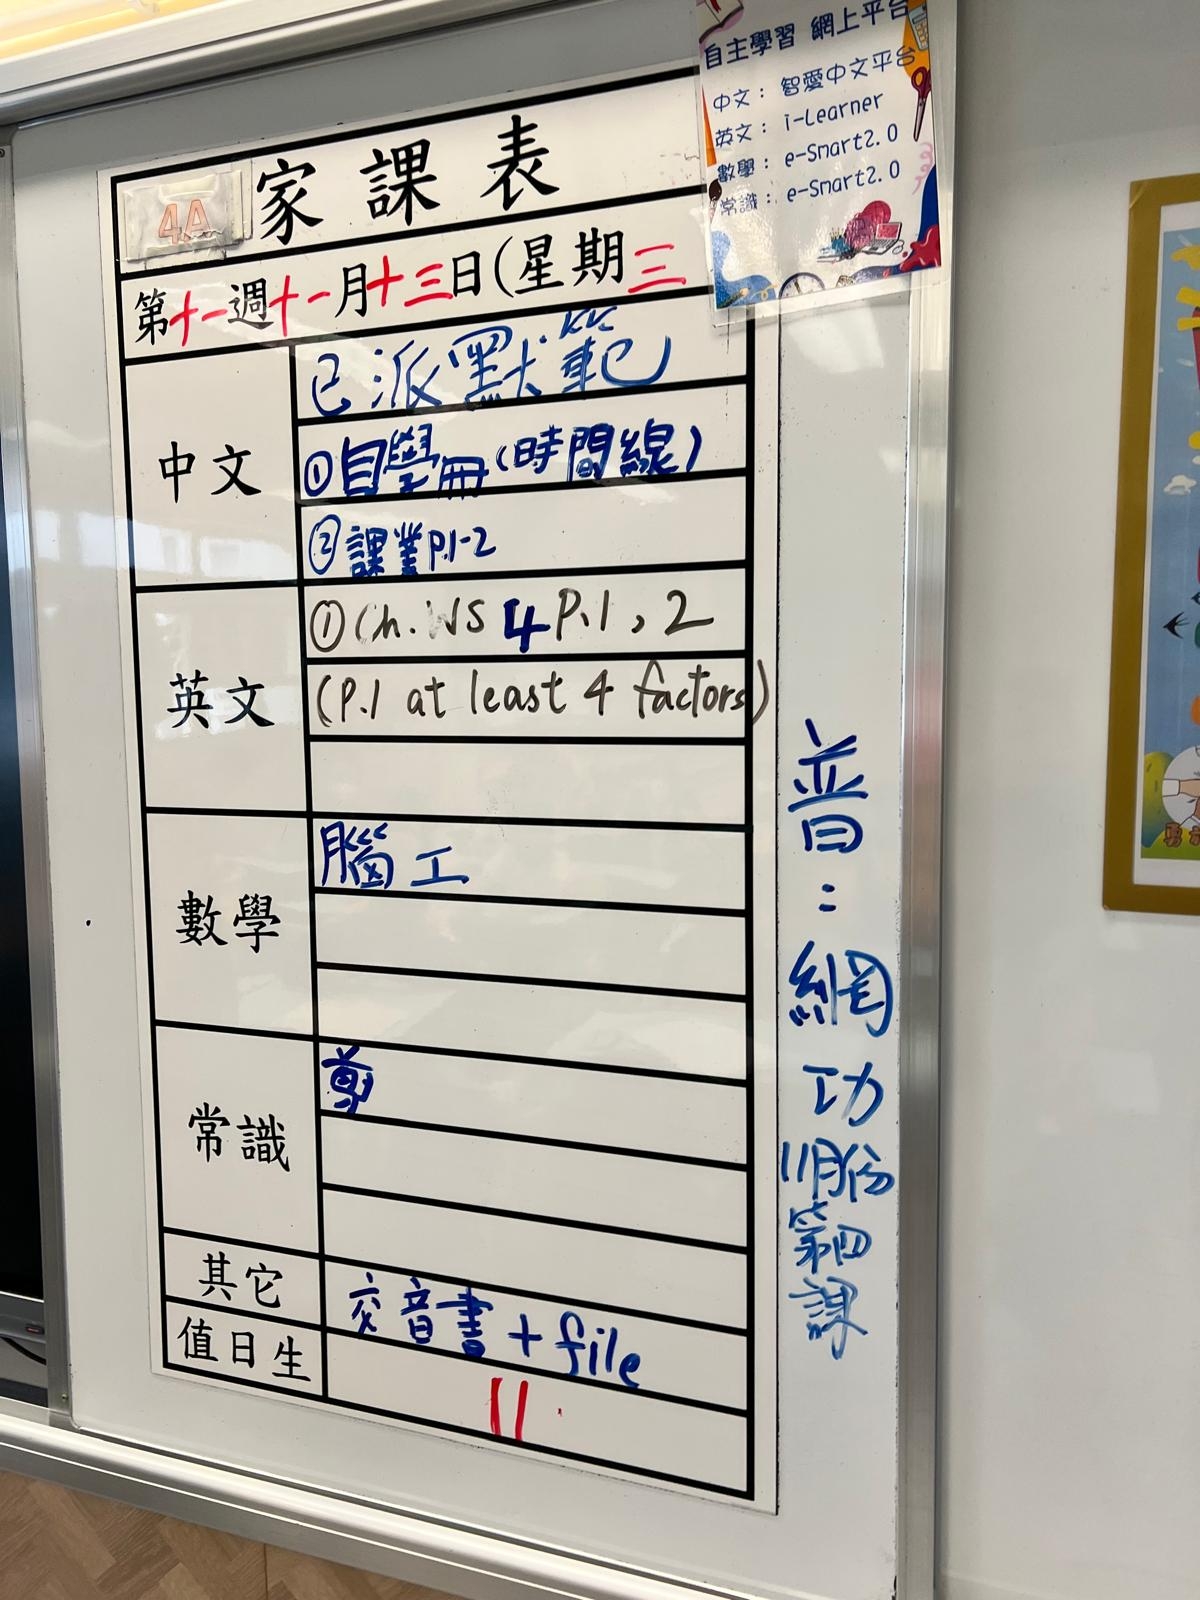 自主學習 網上平台
中文： 智愛中文平台
英文： i-Learner
數學： e-Smart2.0
常識： e-Smart2.0
4A 家課表
第十一週十一月十三日(星期三
中文
已派默範
①自學冊(時間線)
②課業P.1-2
英文
①Ch. WS 4 P.1, 2
(P.1 at least 4 factors)
數學
腦工
常識
其它
交音書+file
值日生
11
普：網功11月份第四課